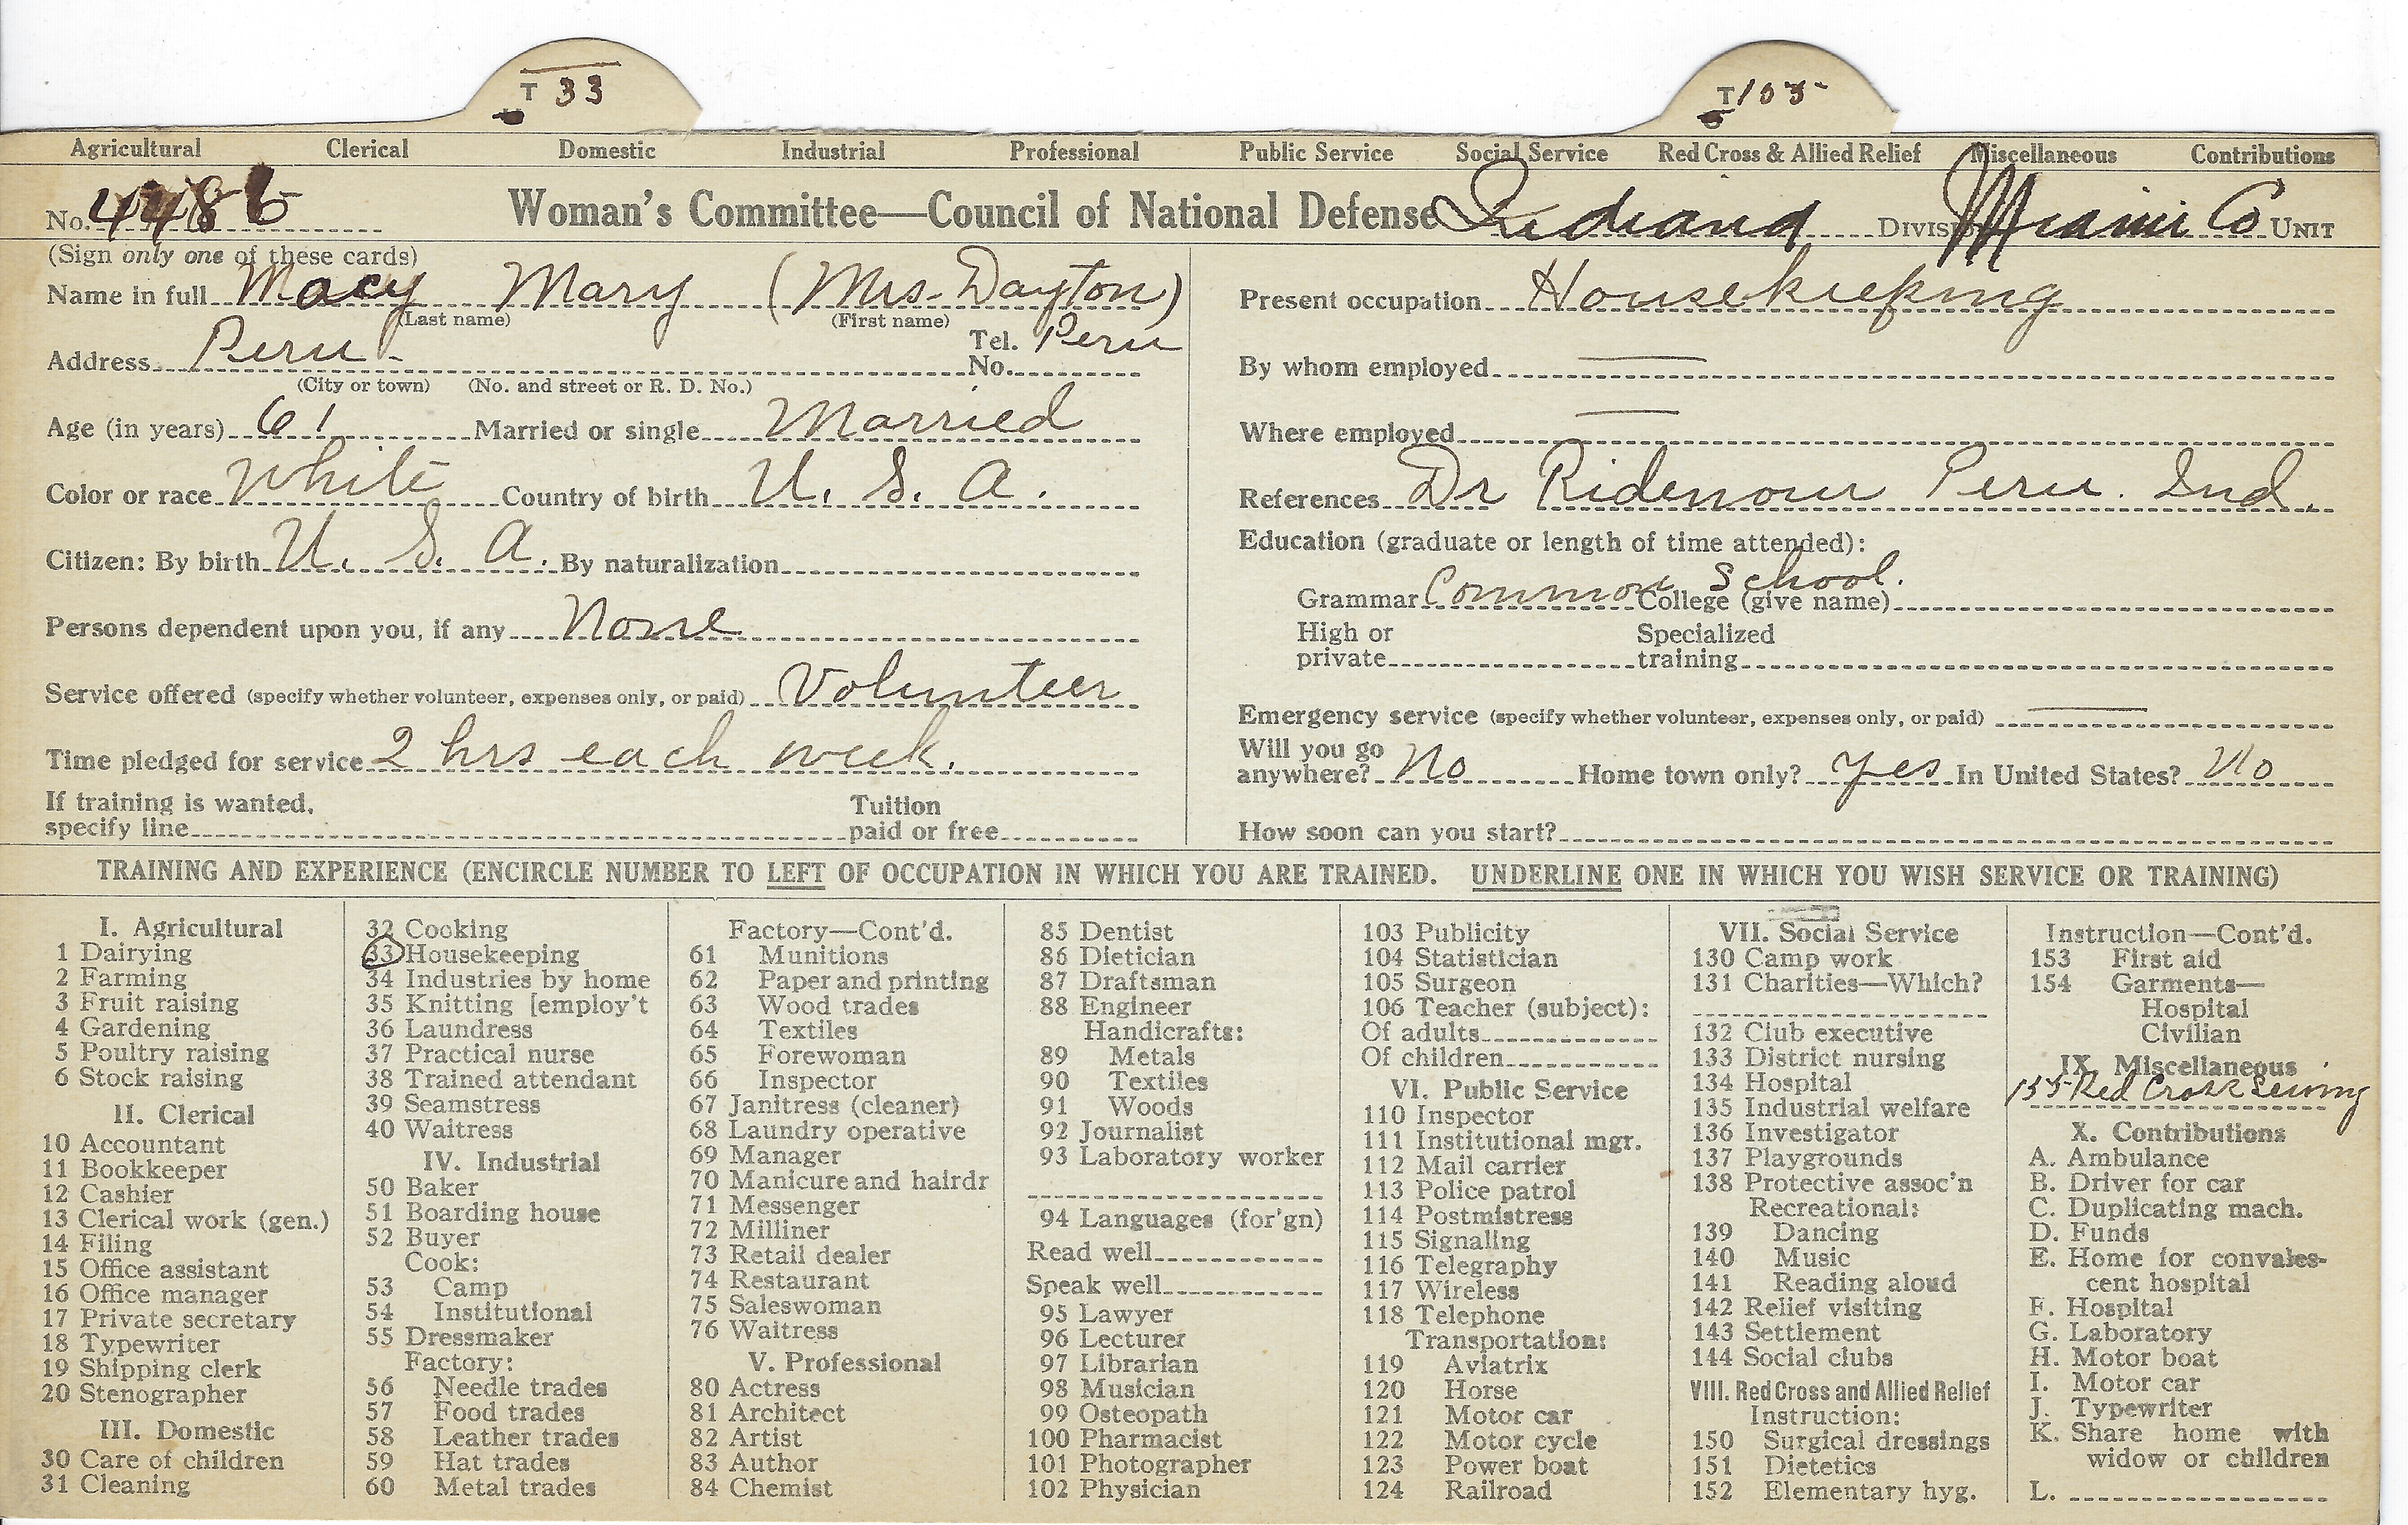 T 33
T 105
Agricultural Clerical Domestic Industrial Professional Public Service Social Service Red Cross & Allied Relief Miscellaneous Contributions
No. 4486 Woman's Committee—Council of National Defense Indiana DIVISION Miami Co UNIT
(Sign only one of these cards)
Name in full Macy Mary (Mrs. Dayton)
(Last name) (First name)
Address Peru Tel. No. Peru
(City or town) (No. and street or R. D. No.)
Age (in years) 61 Married or single Married
Color or race White Country of birth U. S. A.
Citizen: By birth U. S. A. By naturalization
Persons dependent upon you, if any None
Service offered (specify whether volunteer, expenses only, or paid) Volunteer
Time pledged for service 2 hrs each week.
If training is wanted, specify line Tuition paid or free
Present occupation Housekeeping
By whom employed
Where employed
References Dr Ridenour Peru. Ind.
Education (graduate or length of time attended):
Grammar Common School. College (give name)
High or private Specialized training
Emergency service (specify whether volunteer, expenses only, or paid)
Will you go anywhere? No Home town only? Yes In United States? No
How soon can you start?
TRAINING AND EXPERIENCE (ENCIRCLE NUMBER TO LEFT OF OCCUPATION IN WHICH YOU ARE TRAINED. UNDERLINE ONE IN WHICH YOU WISH SERVICE OR TRAINING)
I. Agricultural
1 Dairying
2 Farming
3 Fruit raising
4 Gardening
5 Poultry raising
6 Stock raising
II. Clerical
10 Accountant
11 Bookkeeper
12 Cashier
13 Clerical work (gen.)
14 Filing
15 Office assistant
16 Office manager
17 Private secretary
18 Typewriter
19 Shipping clerk
20 Stenographer
III. Domestic
30 Care of children
31 Cleaning
32 Cooking
33 Housekeeping
34 Industries by home
35 Knitting [employ't
36 Laundress
37 Practical nurse
38 Trained attendant
39 Seamstress
40 Waitress
IV. Industrial
50 Baker
51 Boarding house
52 Buyer
Cook:
53 Camp
54 Institutional
55 Dressmaker
Factory:
56 Needle trades
57 Food trades
58 Leather trades
59 Hat trades
60 Metal trades
Factory—Cont'd.
61 Munitions
62 Paper and printing
63 Wood trades
64 Textiles
65 Forewoman
66 Inspector
67 Janitress (cleaner)
68 Laundry operative
69 Manager
70 Manicure and hairdr
71 Messenger
72 Milliner
73 Retail dealer
74 Restaurant
75 Saleswoman
76 Waitress
V. Professional
80 Actress
81 Architect
82 Artist
83 Author
84 Chemist
85 Dentist
86 Dietician
87 Draftsman
88 Engineer
Handicrafts:
89 Metals
90 Textiles
91 Woods
92 Journalist
93 Laboratory worker
94 Languages (for'gn)
Read well
Speak well
95 Lawyer
96 Lecturer
97 Librarian
98 Musician
99 Osteopath
100 Pharmacist
101 Photographer
102 Physician
103 Publicity
104 Statistician
105 Surgeon
106 Teacher (subject):
Of adults
Of children
VI. Public Service
110 Inspector
111 Institutional mgr.
112 Mail carrier
113 Police patrol
114 Postmistress
115 Signaling
116 Telegraphy
117 Wireless
118 Telephone
Transportation:
119 Aviatrix
120 Horse
121 Motor car
122 Motor cycle
123 Power boat
124 Railroad
VII. Social Service
130 Camp work
131 Charities—Which?
132 Club executive
133 District nursing
134 Hospital
135 Industrial welfare
136 Investigator
137 Playgrounds
138 Protective assoc'n
Recreational:
139 Dancing
140 Music
141 Reading aloud
142 Relief visiting
143 Settlement
144 Social clubs
VIII. Red Cross and Allied Relief
Instruction:
150 Surgical dressings
151 Dietetics
152 Elementary hyg.
Instruction—Cont'd.
153 First aid
154 Garments—
Hospital
Civilian
IX. Miscellaneous
155 Red Cross Sewing
X. Contributions
A. Ambulance
B. Driver for car
C. Duplicating mach.
D. Funds
E. Home for convales-
cent hospital
F. Hospital
G. Laboratory
H. Motor boat
I. Motor car
J. Typewriter
K. Share home with
widow or children
L.